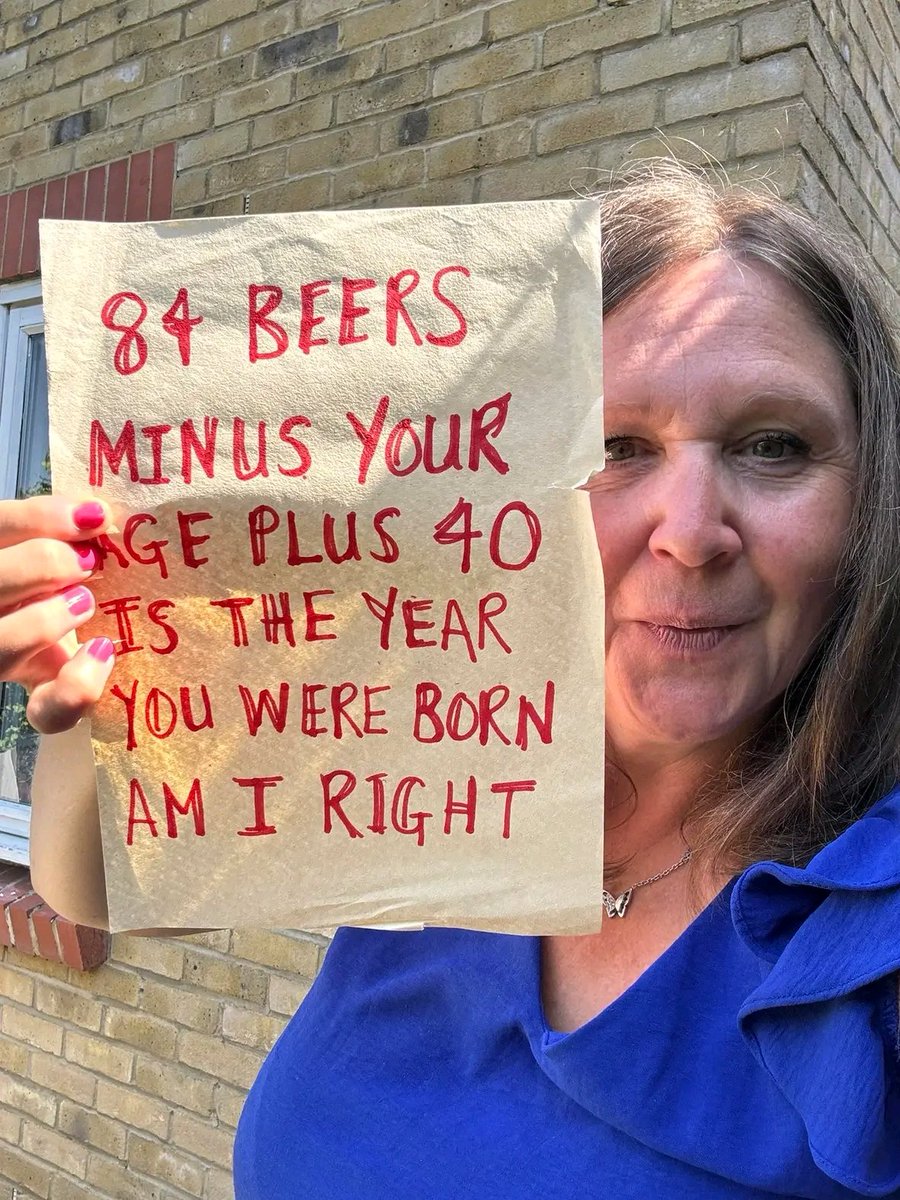 84 BEERS
MINUS YOUR
AGE PLUS 40
IS THE YEAR
YOU WERE BORN
AM I RIGHT